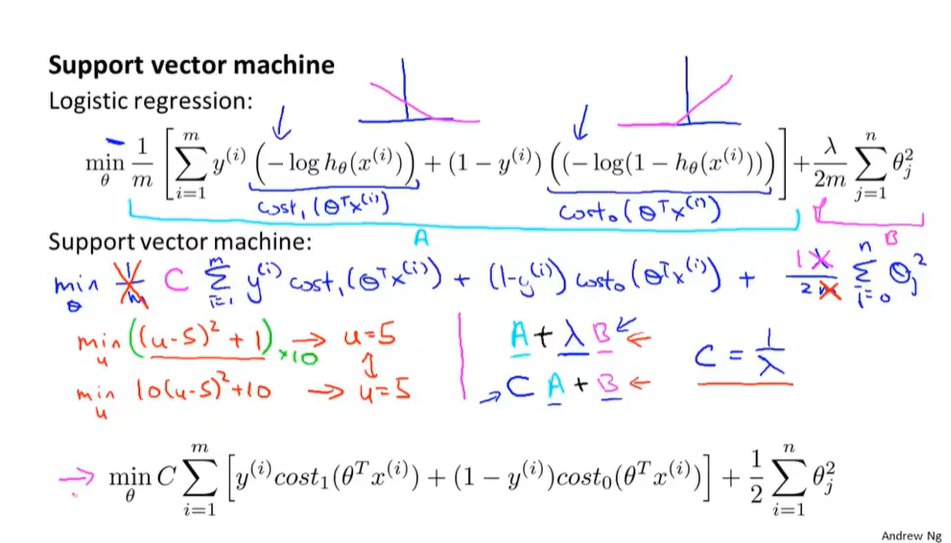 Support vector machine
Logistic regression:
min_θ 1/m [ ∑_{i=1}^{m} y^{(i)} (− log h_θ(x^{(i)})) + (1 − y^{(i)}) ((− log(1 − h_θ(x^{(i)}))) ] + λ/2m ∑_{j=1}^{n} θ_j^2
cost_1(θ^T x^{(i)}) cost_0(θ^T x^{(i)})
A B
Support vector machine:
min_θ 1/m C ∑_{i=1}^{m} y^{(i)} cost_1(θ^T x^{(i)}) + (1-y^{(i)}) cost_0(θ^T x^{(i)}) + 1 λ/2m ∑_{i=0}^{n} θ_j^2
min_u ((u-5)^2 + 1) ×10 → u=5
A + λ B ←
C = 1/λ
min_u 10(u-5)^2+10 → u=5
→ C A + B ←
→ min_θ C ∑_{i=1}^{m} [ y^{(i)} cost_1(θ^T x^{(i)}) + (1 − y^{(i)}) cost_0(θ^T x^{(i)}) ] + 1/2 ∑_{i=1}^{n} θ_j^2
Andrew Ng